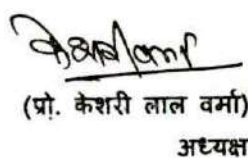 (प्रो. केशरी लाल वर्मा)
अध्यक्ष